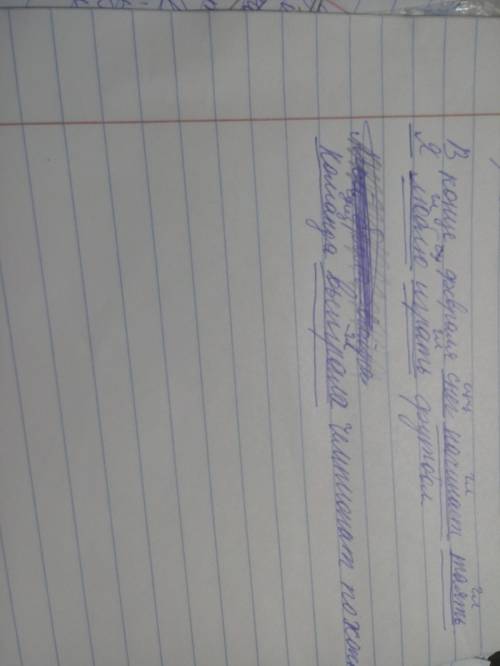 В конце февраля снег начинает таять
Я люблю играть футбол
Команда выиграла чемпионат по хок